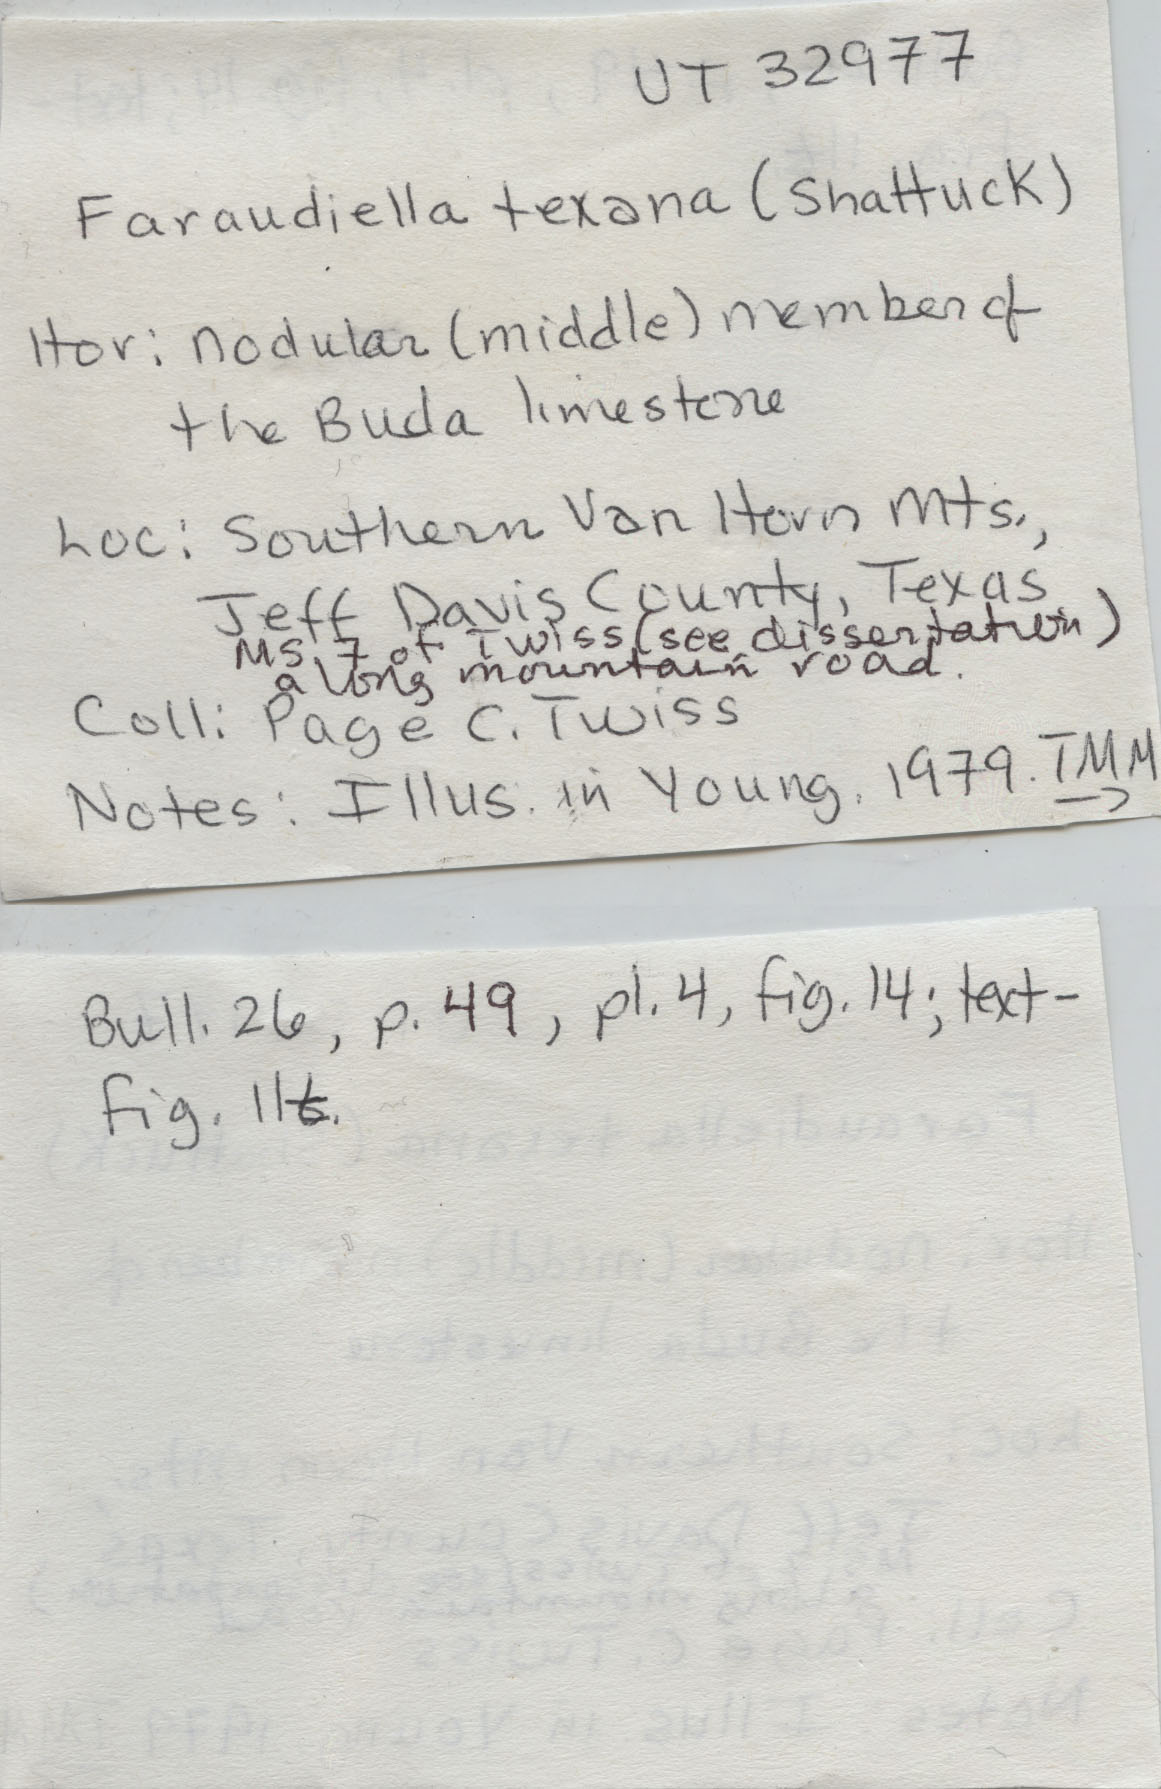 UT 32977
Faraudiella texana (Shattuck)
Hor: nodular (middle) member of
the Buda limestone
Loc: Southern Van Horn Mts.,
Jeff Davis County, Texas
MS 7 of Twiss (see dissertation)
along mountain road.
Coll: Page C. Twiss
Notes: Illus. in Young. 1979. TMM
Bull. 26, p. 49, pl. 4, fig. 14; text-
fig. 11t.